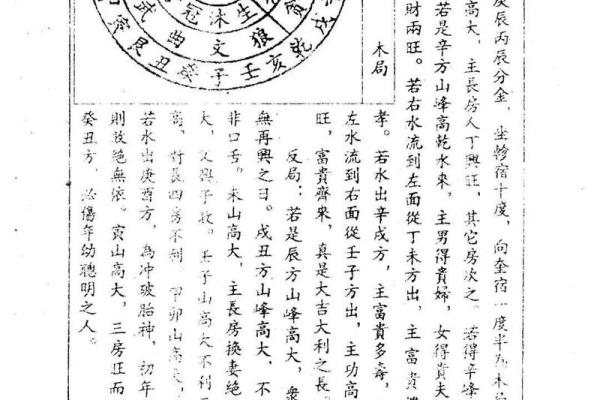 庚辰丙辰分金，坐軫宿十度，向奎宿一度半為木局
高大，主長房人丁興旺，其它房次之。若得辛峰
若是辛方山峰高乾水來，主男得貴婦，女得貴夫
財兩旺。若右水流到左面從丁未方出，主富貴
木局
孝。若水出辛戌方，主富貴多壽，
左水流到右面從壬子方出，主功高
旺，富貴齊來，真是大吉大利之長
反局：若是辰方山峰高大，衆
無再興之日。戌丑方山峰高大，不
非口舌。未山高大，主長房換妻絕
大，又興予敗。壬子山高大不利二
高，對長四房不利 甲卯山高大，
若水出庚酉方，為冲破胎神，初年
則敗絕無依。寅山高大，三房旺而
癸丑方，必傷年幼聰明之人。
戌乾亥壬子癸丑艮寅
貪狼文曲武
生沐冠